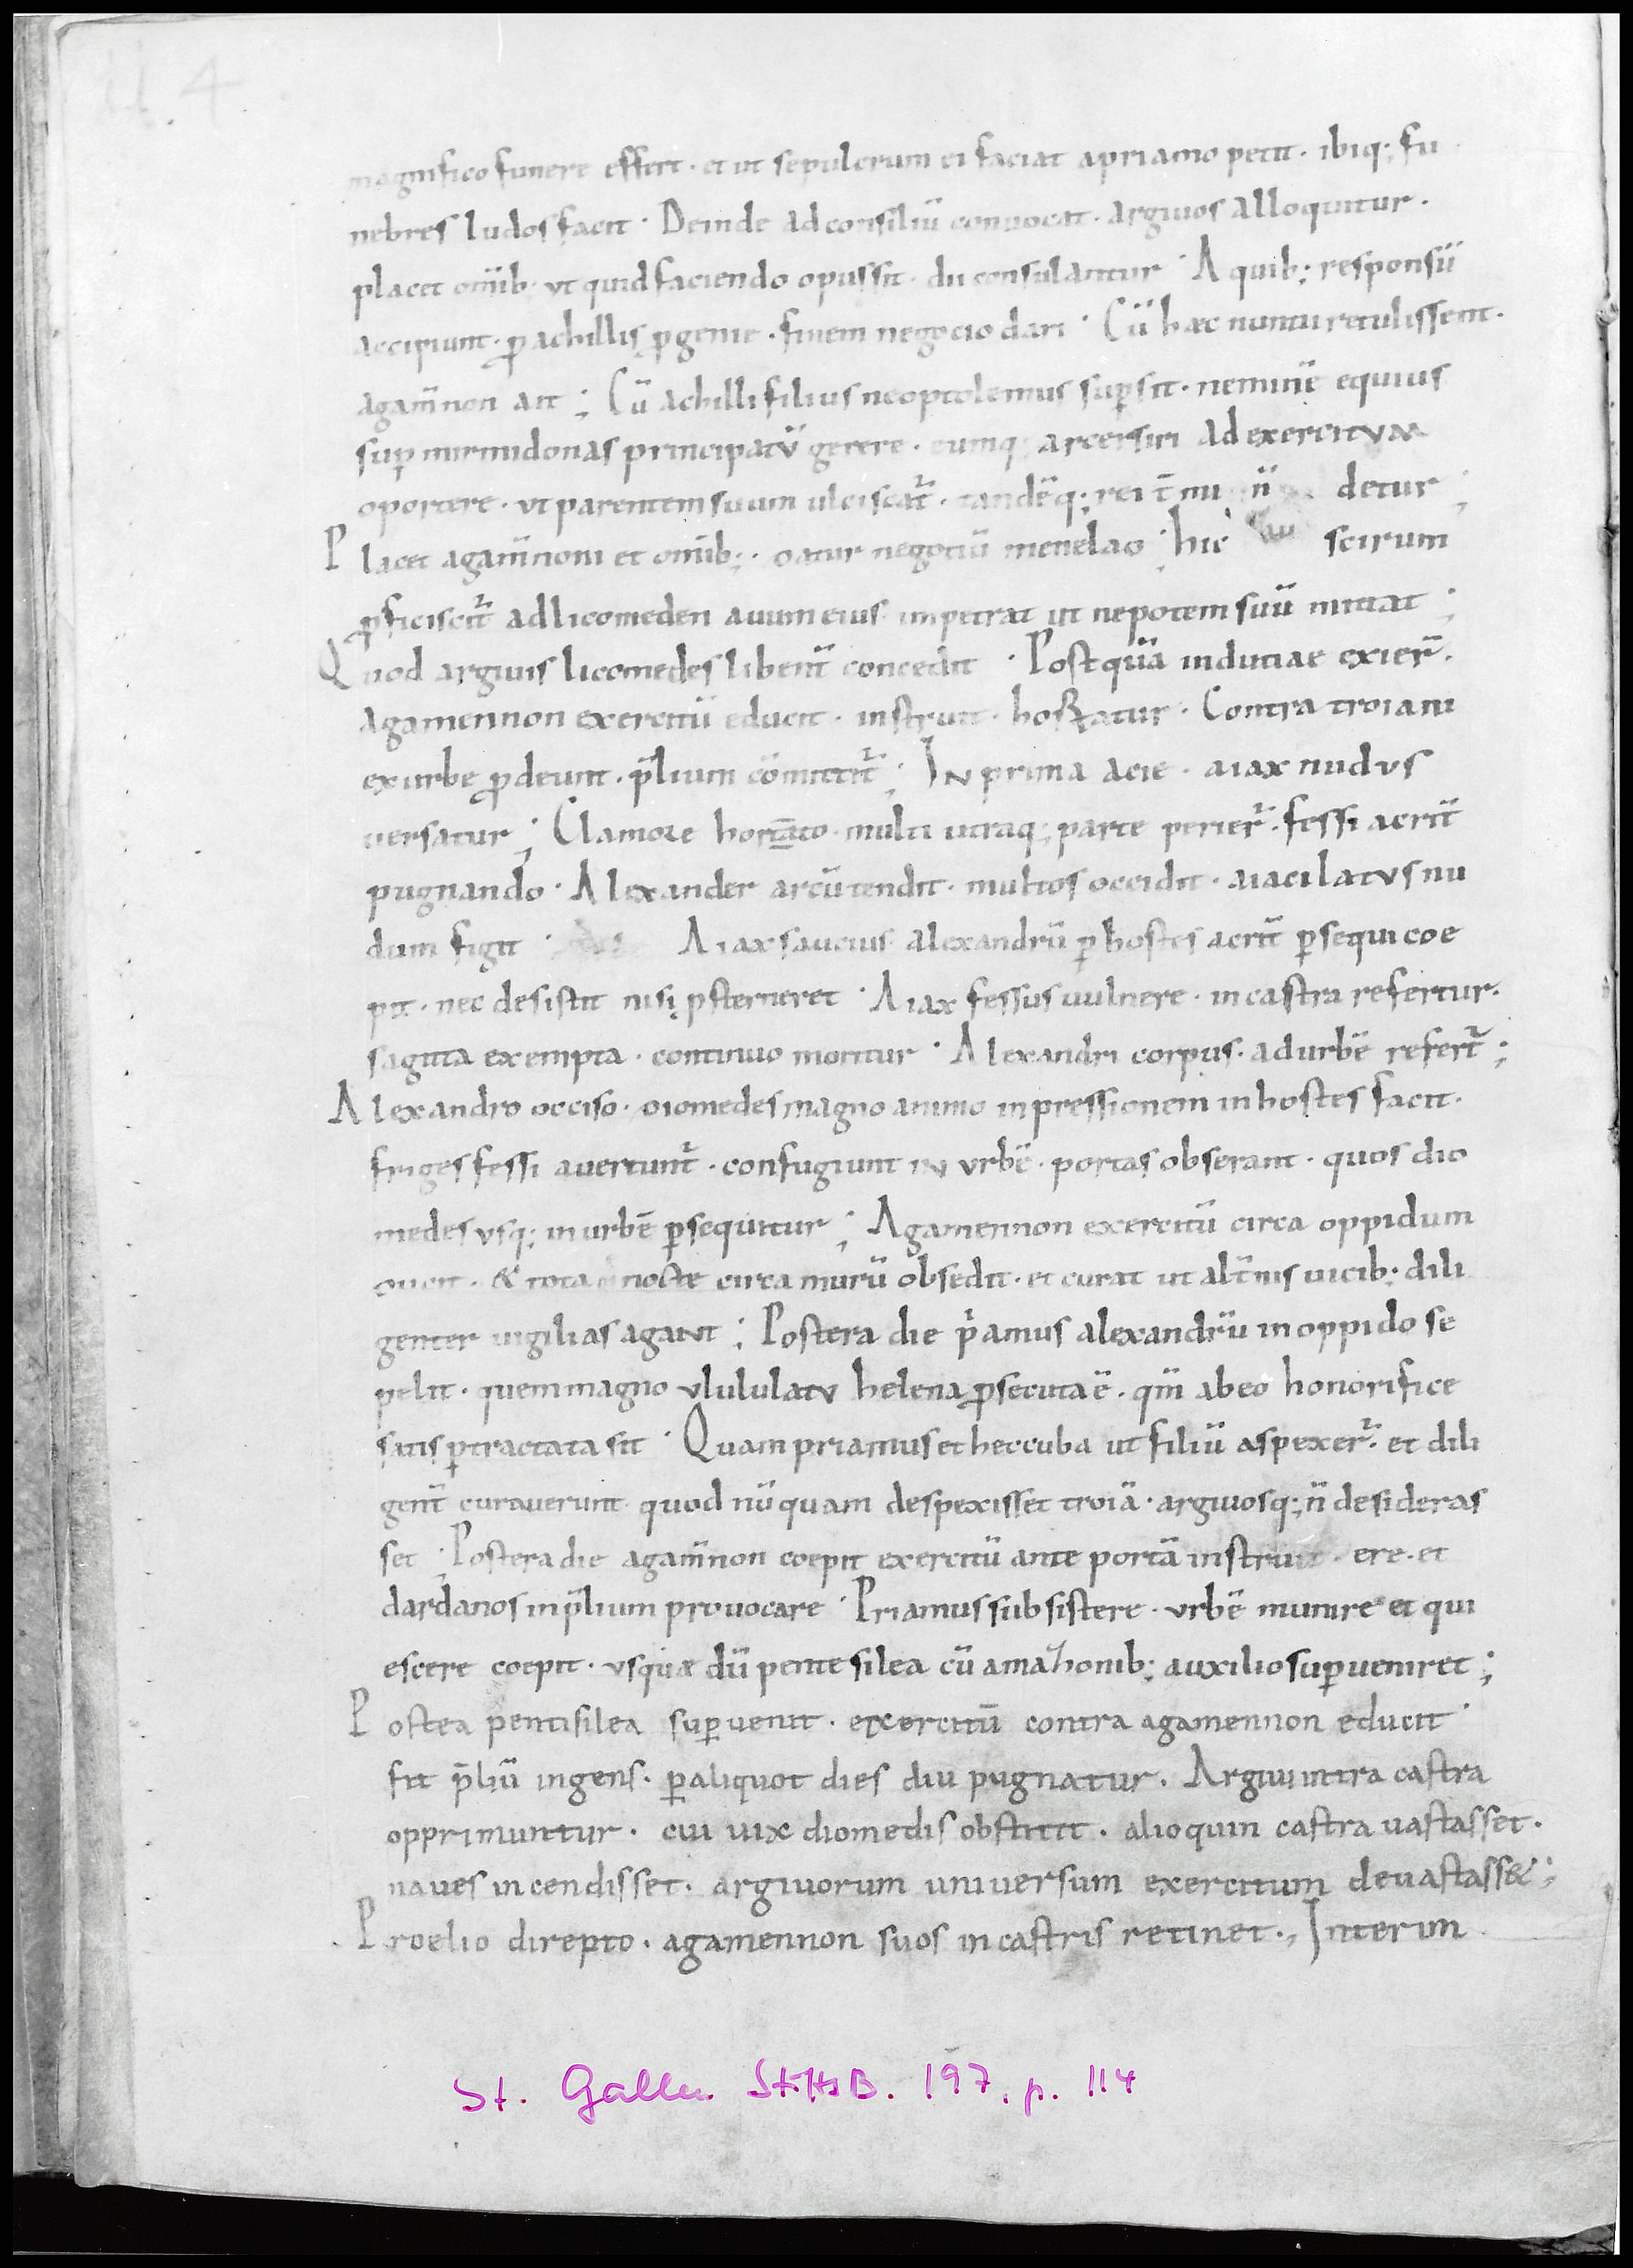 114
magnifico funere effert · et ut sepulcrum ei faciat apriamo petit · ibiq; fu
nebres ludos facit · Deinde ad consiliū conuocat · argiuos alloquitur ·
placet om̄ib· ut quid faciendo opus sit · dii consulantur · A quib; responsū
accipiunt · p̄ achillis p̄genie · finem negocio dari · Cū haec nuntii retulissent ·
agam̄non ait ; Cū achilli filius neoptolemus sup̄sit · neminē equius
sup̄ mirmidonas principatū gerere · eumq; arcersiri ad exercitum
oportere · ut parentem suum ulciscat̄ · tandēq; rei t̄mi n detur ;
Placet agam̄noni et om̄ib; · datur negotiū menelao ; hic scirum
p̄ficiscit̄ ad licomeden auum eius impetrat ut nepotem suū mittat ;
Quod argiuis licomedes libent̄ concedit · Postquā indutiae exier̄ ·
Agamennon exercitū educit · instruit · hortatur · Contra troiani
ex urbe p̄deunt · p̄lium cōmittit̄ ; In prima acie · aiax nudus
uersatur ; Clamore hortato · multi utraq; parte perier̄ · fessi acrit̄
pugnando · Alexander arcū tendit · multos occidit · aiaci latus nu
dum figit · Aiax saucius alexandrū p̄ hostes acrit̄ p̄sequi coe
pit · nec desistit nisi p̄sterneret · Aiax fessus uulnere · in castra refertur ·
sagitta exempta · continuo moritur · Alexandri corpus · ad urbē refert̄ ;
Alexandro occiso · diomedes magno animo inpressionem in hostes facit ·
friges fessi auertunt̄ · confugiunt in urbē · portas obserant · quos dio
medes usq; in urbē p̄sequitur ; Agamennon exercitū circa oppidum
ducit · & tota nocte circa murū obsedit · et curat ut alt̄nis uicib; dili
genter uigilias agant ; Postera die p̄amus alexandrū in oppido se
pelit · quem magno ulululatu helena p̄secuta ē · qm̄ ab eo honorifice
satis p̄tractata sit · Quam priamus et heccuba ut filiū aspexer̄ · et dili
gent̄ curauerunt quod nū quam despexisset troiā · argiuosq; n̄ desideras
set ; Postera die agam̄non coepit exercitū ante portā instru ere · et
dardanos in p̄lium prouocare · Priamus subsistere · urbē munire et qui
escere coepit · usquae dū pentesilea cū amazhonib; auxilio sup̄ueniret ;
Postea pentisilea sup̄uenit · exercitū contra agamennon educit ·
fit p̄liū ingens · p̄ aliquot dies diu pugnatur · Argiui intra castra
opprimuntur · cui uix diomedis obstitit · alioquin castra uastasset ·
naues incendisset · argiuorum uniuersum exercitum deuastass& ;
Proelio direpto · agamennon suos in castris retinet · , Interim
St. Gallen StiftsB. 197, p. 114